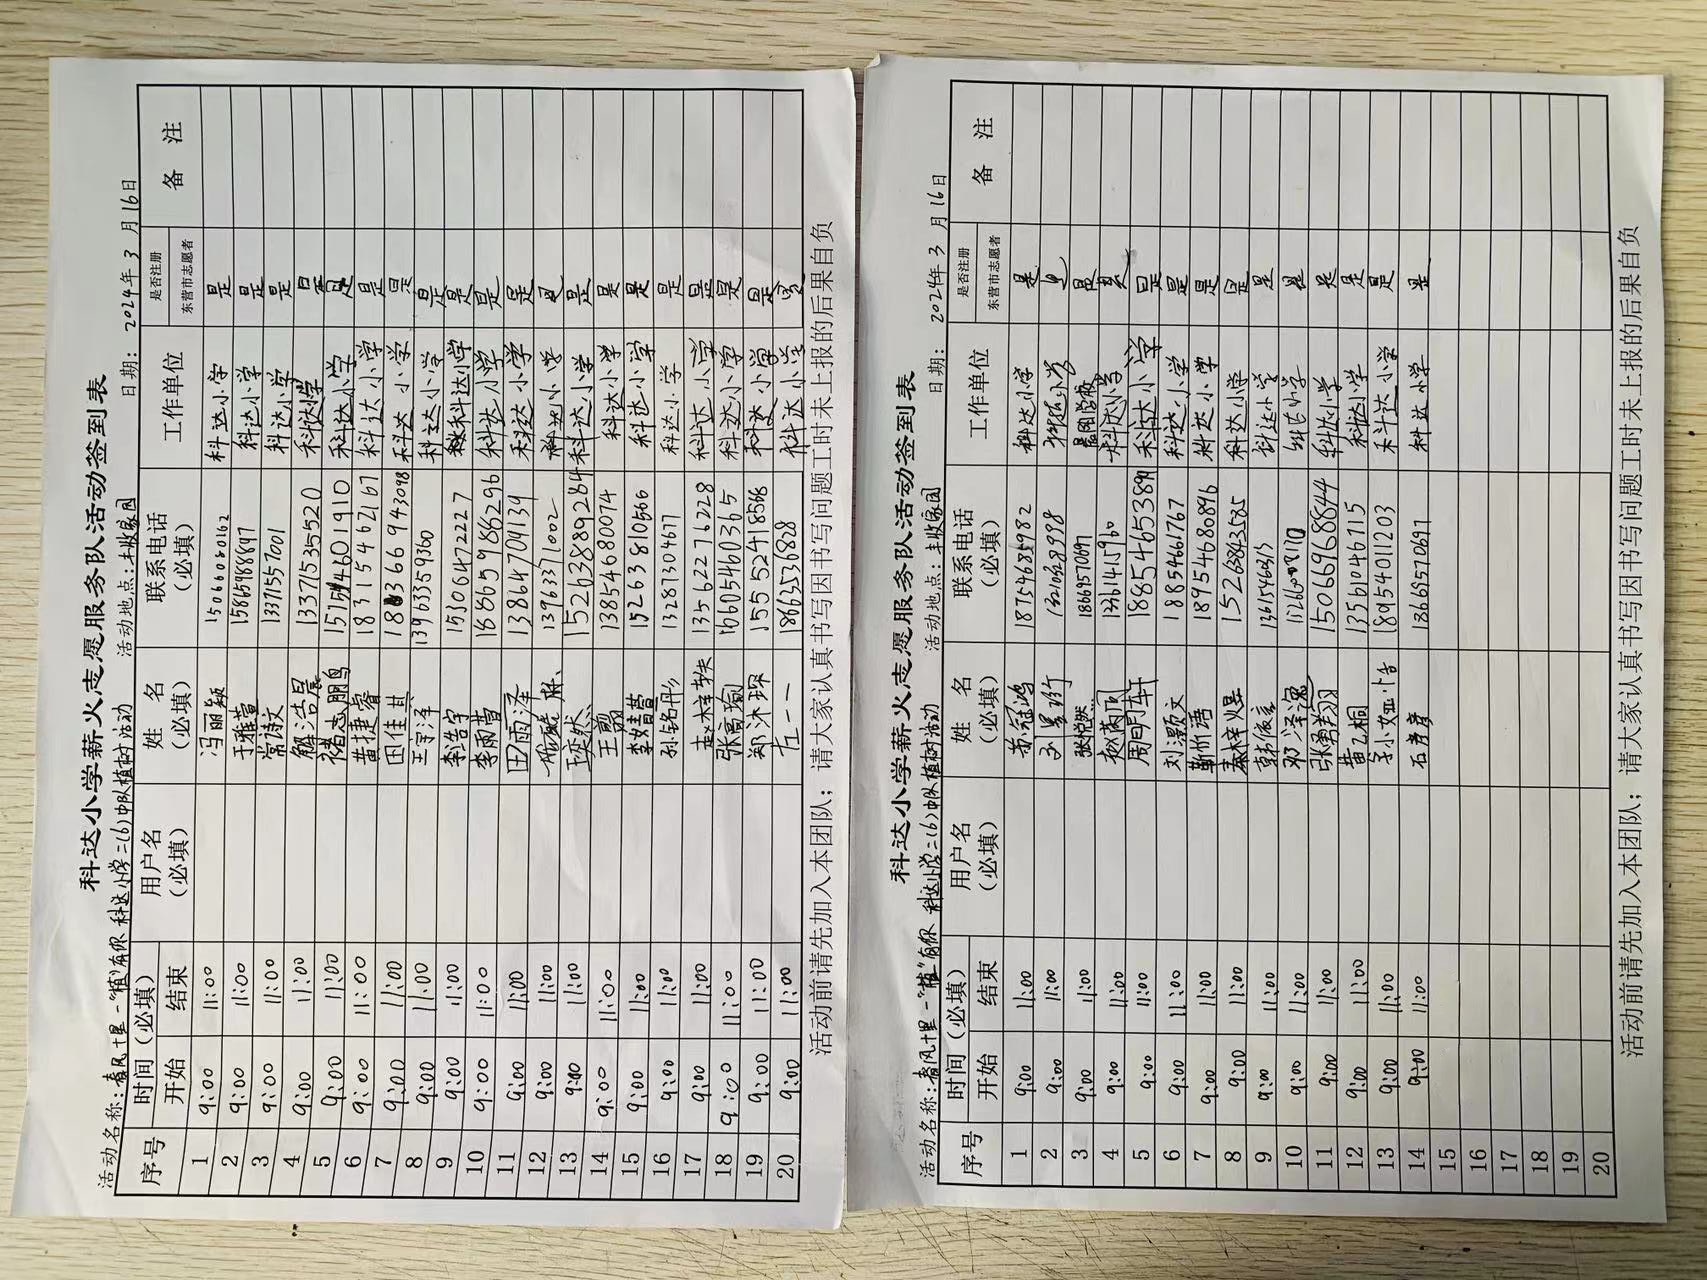 科达小学薪火志愿服务队活动签到表
活动名称:春风十里一"植"有你 科达小学二(6)中队植树活动 活动地点:丰收家园 日期: 2024年 3 月 16日
序号 时间(必填) 用户名 姓 名 联系电话 工作单位 是否注册 备 注
开始 结束 (必填) (必填) (必填) 东营市志愿者
1 9:00 11:00 冯丽颖 15066080162 科达小学 是
2 9:00 11:00 于雅萱 15865988897 科达小学 是
3 9:00 11:00 常诗文 13371557001 科达小学 是
4 9:00 11:00 解浩晨 13371535520 科达小学 是
5 9:00 11:00 褚志鹏 1601910 科达小学 是
6 9:00 11:00 黄捷睿 18315467167 科达小学 是
7 9:00 11:00 田佳其 科达小学 是
8 9:00 11:00 王宇泽 13963359360 科达小学 是
9 9:00 11:00 李浩宇 15306472227 科达小学 是
10 9:00 11:00 李雨曹 18659886296 科达小学 是
11 9:00 11:00 田雨泽 13864704139 科达小学 是
12 9:00 11:00 13963371002 科达小学 是
13 9:00 11:00 王奕然 15263889284 科达小学 是
14 9:00 11:00 王 13854680074 科达小学 是
15 9:00 11:00 李婧萱 15263810566 科达小学 是
16 9:00 11:00 孙铭彤 13287304677 科达小学 是
17 9:00 11:00 赵梓轶 13562276228 科达小学 是
18 9:00 11:00 张高瑜 16605460365 科达小学 是
19 9:00 11:00 郑沐琛 15552418568 科达小学 是
20 9:00 11:00 左一一 18663536828 科达小学 是
活动前请先加入本团队; 请大家认真书写因书写问题工时未上报的后果自负
科达小学薪火志愿服务队活动签到表
活动名称:春风十里一"植"有你 科达小学二(6)中队植树活动 活动地点:丰收家园 日期: 2024年 3 月 16日
序号 时间(必填) 用户名 姓 名 联系电话 工作单位 是否注册 备 注
开始 结束 (必填) (必填) (必填) 东营市志愿者
1 9:00 11:00 冠鸿 18754685982 科达小学 是
2 9:00 11:00 刘景珩 科达小学 是
3 9:00 11:00 张悦然 18669570697 是
4 9:00 11:00 赵芮 13361415960 科达小学 是
5 9:00 11:00 周玥车干 18854653891 科达小学 是
6 9:00 11:00 刘灏文 18854661767 科达小学 是
7 9:00 11:00 靳忻语 18954680896 科达小学 是
8 9:00 11:00 秦梓煜 15268843585 科达小学 是
9 9:00 11:00 韩 科达小学 是
10 9:00 11:00 邓泽 科达小学 是
11 9:00 11:00 张勇翔 15066968844 科达小学 是
12 9:00 11:00 黄乙桐 13561046715 科达小学 是
13 9:00 11:00 18954011203 科达小学 是
14 9:00 11:00 石彦 18669570697 科达小学 是
15
16
17
18
19
20
活动前请先加入本团队; 请大家认真书写因书写问题工时未上报的后果自负